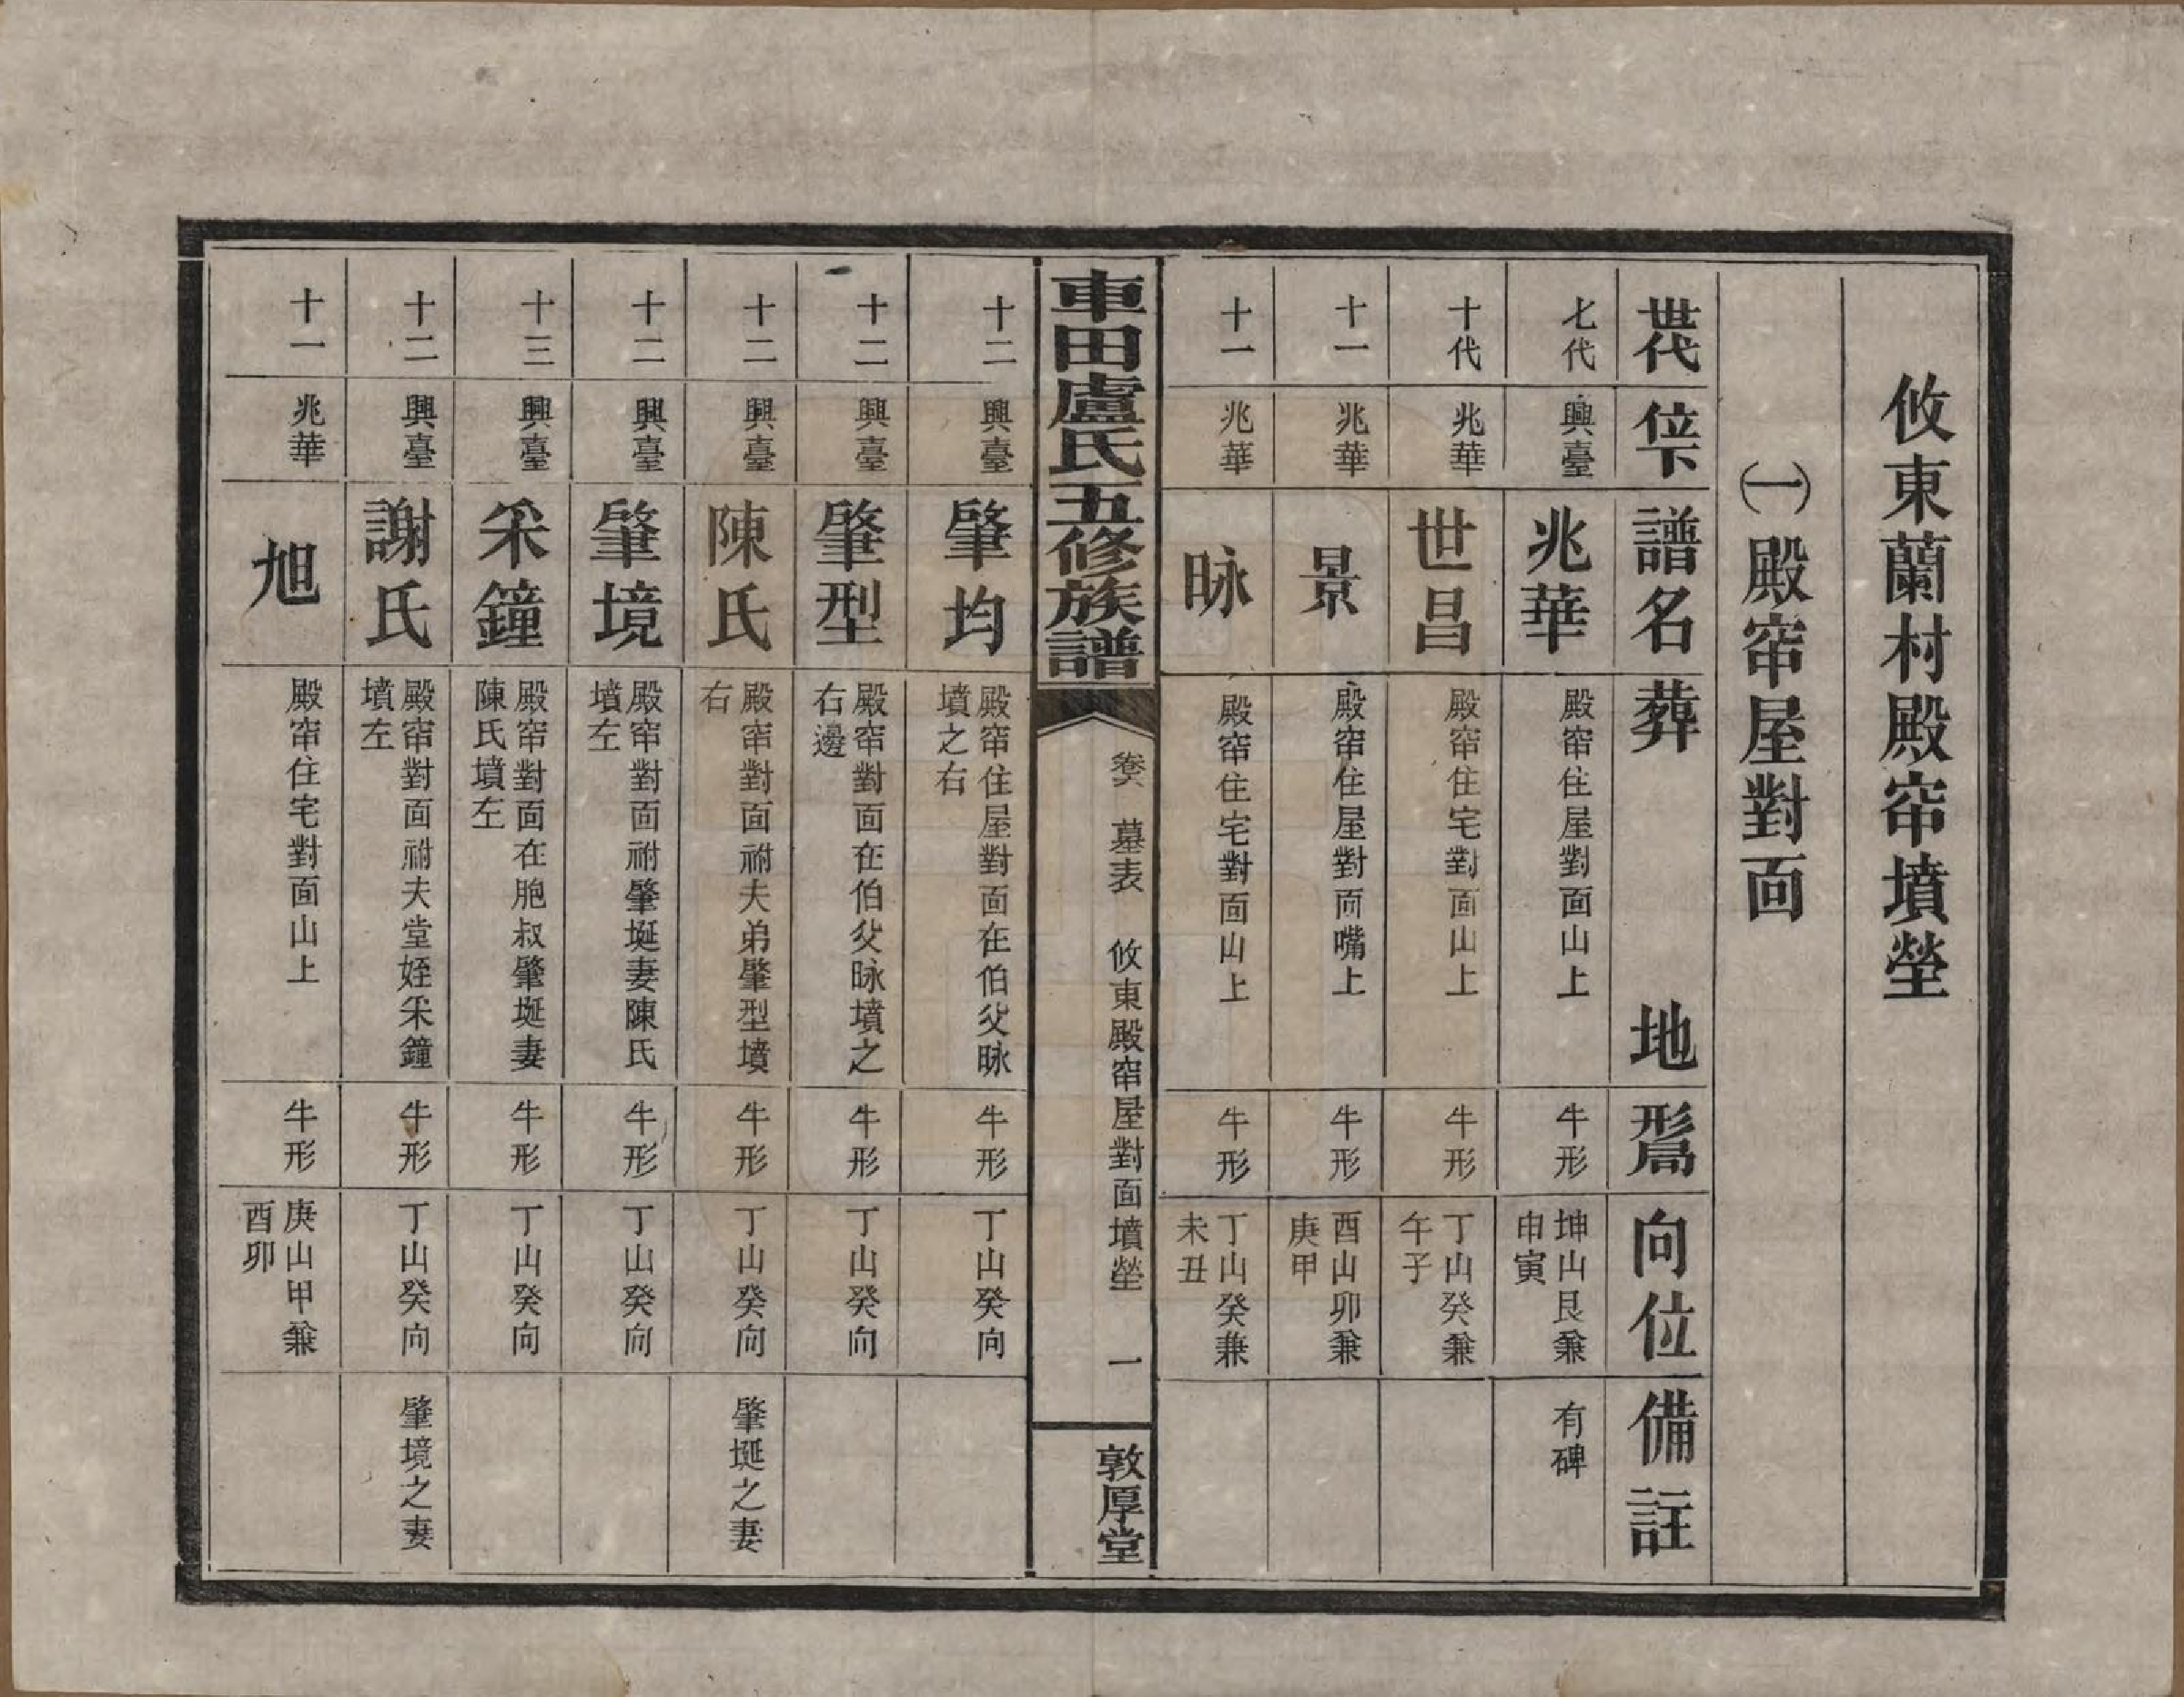 攸東蘭村殿帘墳塋
㈠殿帘屋對面
世代 位下 譜名 葬地 形局 向位 備註
七代 興臺 兆華 殿帘住屋對面山上 牛形 坤山艮兼申寅 有碑
十代 兆華 世昌 殿帘住宅對面山上 牛形 丁山癸兼午子
十一 兆華 景 殿帘住屋對面嘴上 牛形 酉山卯兼庚甲
十一 兆華 昹 殿帘住宅對面山上 牛形 丁山癸兼未丑
車田盧氏五修族譜 卷六 墓表 攸東殿帘屋對面墳塋 一 敦厚堂
十二 興臺 肇均 殿帘住屋對面在伯父昹墳之右 牛形 丁山癸向
十二 興臺 肇型 殿帘對面在伯父昹墳之右邊 牛形 丁山癸向
十二 興臺 陳氏 殿帘對面祔夫弟肇型墳右 牛形 丁山癸向 肇埏之妻
十二 興臺 肇境 殿帘對面祔肇埏妻陳氏墳左 牛形 丁山癸向
十三 興臺 采鐘 殿帘對面在胞叔肇埏妻陳氏墳左 牛形 丁山癸向
十二 興臺 謝氏 殿帘對面祔夫堂姪采鐘墳左 牛形 丁山癸向 肇境之妻
十一 兆華 旭 殿帘住宅對面山上 牛形 庚山甲兼酉卯